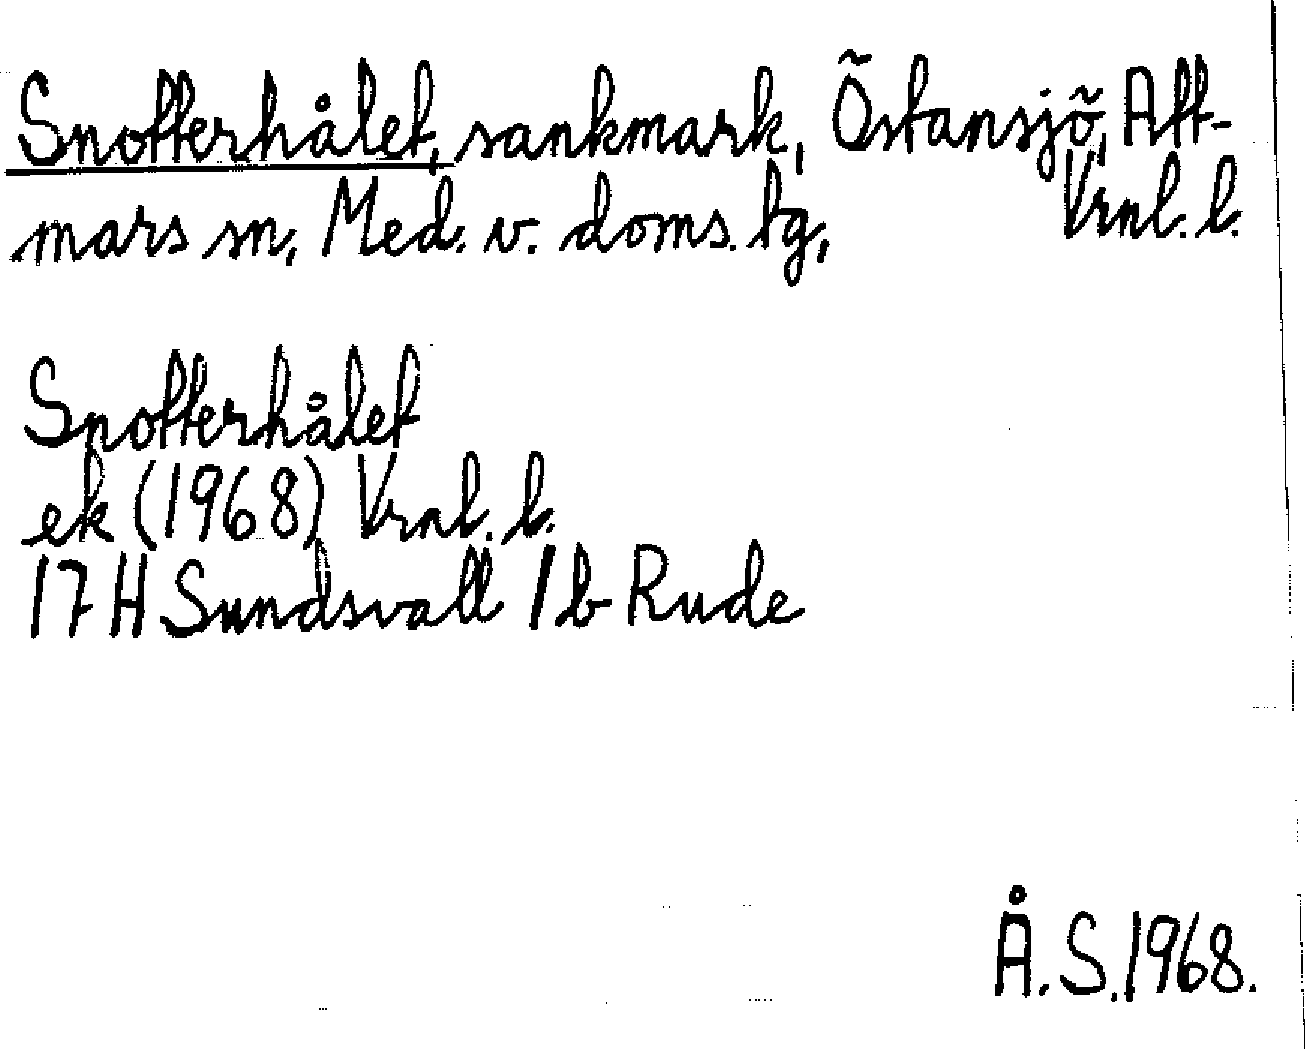 Snotterhålet, sankmark, Östansjö, Att-
mars sn, Med. v. doms. tg, Vrnl. l.
Snotterhålet
ek (1968) Vrnl. l.
17 H Sundsvall 1 b Rude
Å. S. 1968.